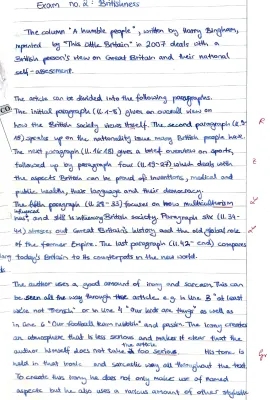 Exam no. 2: Britishness
The column "A humble people", written by Harry Bingham,
reprinted by "This Little Britain" in 2007 deals with a
British person's view on Great Britain and their national
self-assessment.
The article can be divided into the following paragraphs.
The initial paragraphs (ll. 1-8) gives an overall view on
how the British society views itself. The second paragraph (ll. 9-
15) speaks up on the nationality issue many British people have.
The next paragraph (ll. 16-18) gives a brief overview on sports,
followed up by paragraph four (ll. 19-27) which deals with
the aspects Britain can be proud of: inventions, medical and
public health, their language and their democracy.
The fifth paragraph (ll. 28-33) focuses on how multiculturalism
influenced
and still is influencing British society. Paragraph six (ll. 34-
41) stresses out Great Britain's history and the old global role
of the former Empire. The last paragraph (ll. 42- end) compares
today's Britain to its counterparts in the new world.
The author uses a good amount of irony and sarcasm. This can
be seen all the way through the article e.g. in line 3 "at least
we're not French" or in line 4 "Our lords are things" as well as
in line 6 "Our football team rubbish" and The irony creates
an atmosphere that is less serious and makes it clear that the
the article
author himself does not take too serious. His tone is
held in that ironic and sarcastic way all throughout the text.
To create this irony he does not only make use of named
aspects but he also uses a various amount of other stylistic